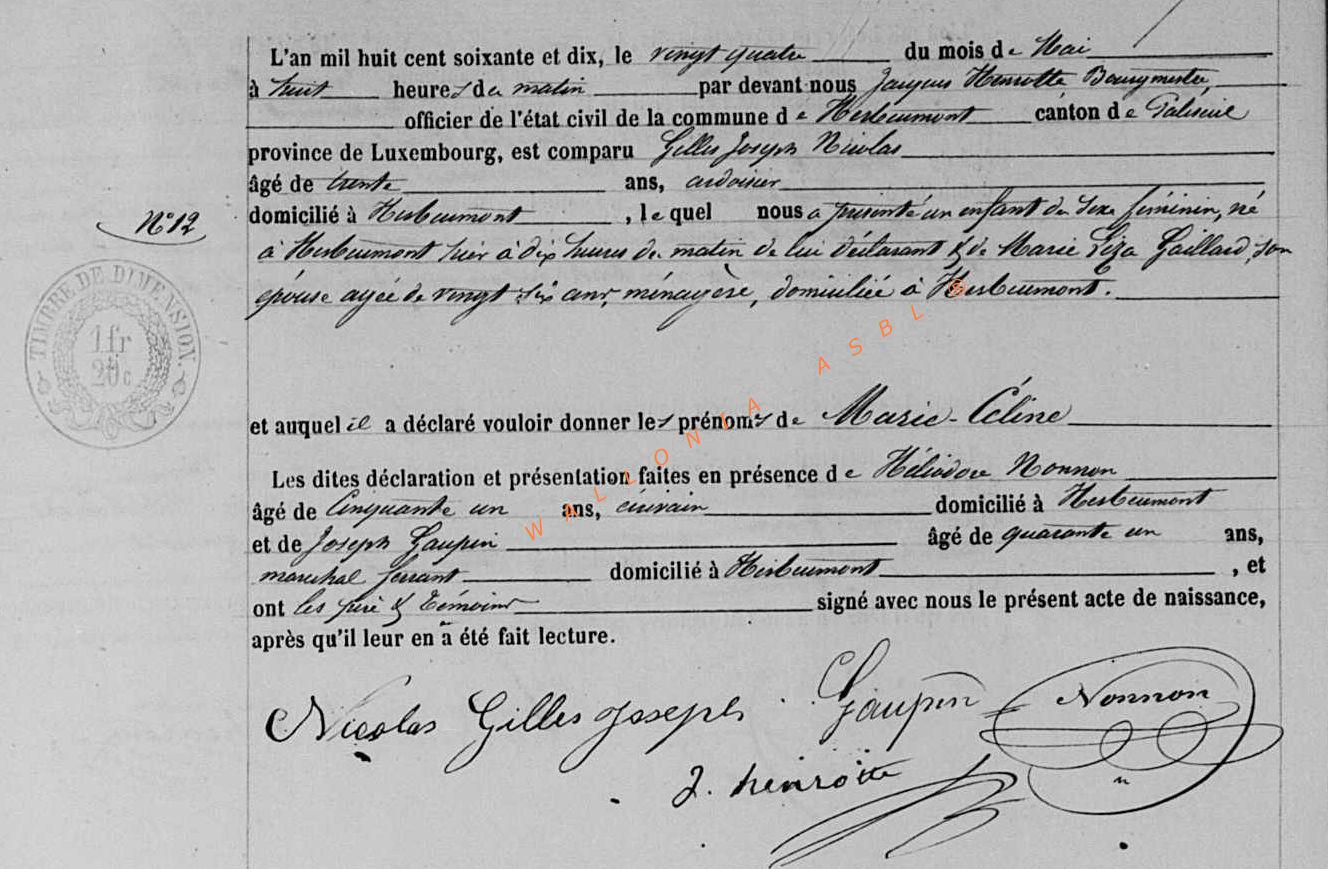 L'an mil huit cent soixante et dix, le vingt quatre du mois de Mai
à huit heures du matin par devant nous Jacques Henrotte Bourgmestre,
officier de l'état civil de la commune de Herbeumont canton de Paliseul
province de Luxembourg, est comparu Gilles Joseph Nicolas
âgé de trente ans, ardoisier
domicilié à Herbeumont, lequel nous a présenté un enfant du sexe féminin, né
N° 12
à Herbeumont hier à dix heures du matin de lui déclarant & de Marie Gaillard, son
épouse agée de vingt six ans, ménagère, domiciliée à Herbeumont.
TIMBRE DE DIMENSION.
1 fr
20 c
et auquel il a déclaré vouloir donner les prénoms de Marie-Céline
Les dites déclaration et présentation faites en présence de Héliodore Nonnon
âgé de Cinquante un ans, domicilié à Herbeumont
et de Joseph Gaupin âgé de quarante un ans,
marechal ferrant domicilié à Herbeumont, et
ont les père & témoins signé avec nous le présent acte de naissance,
après qu'il leur en a été fait lecture.
Nicolas Gilles Joseph Gaupin Nonnon
J. henrotte
WALLONIA ASBL ©